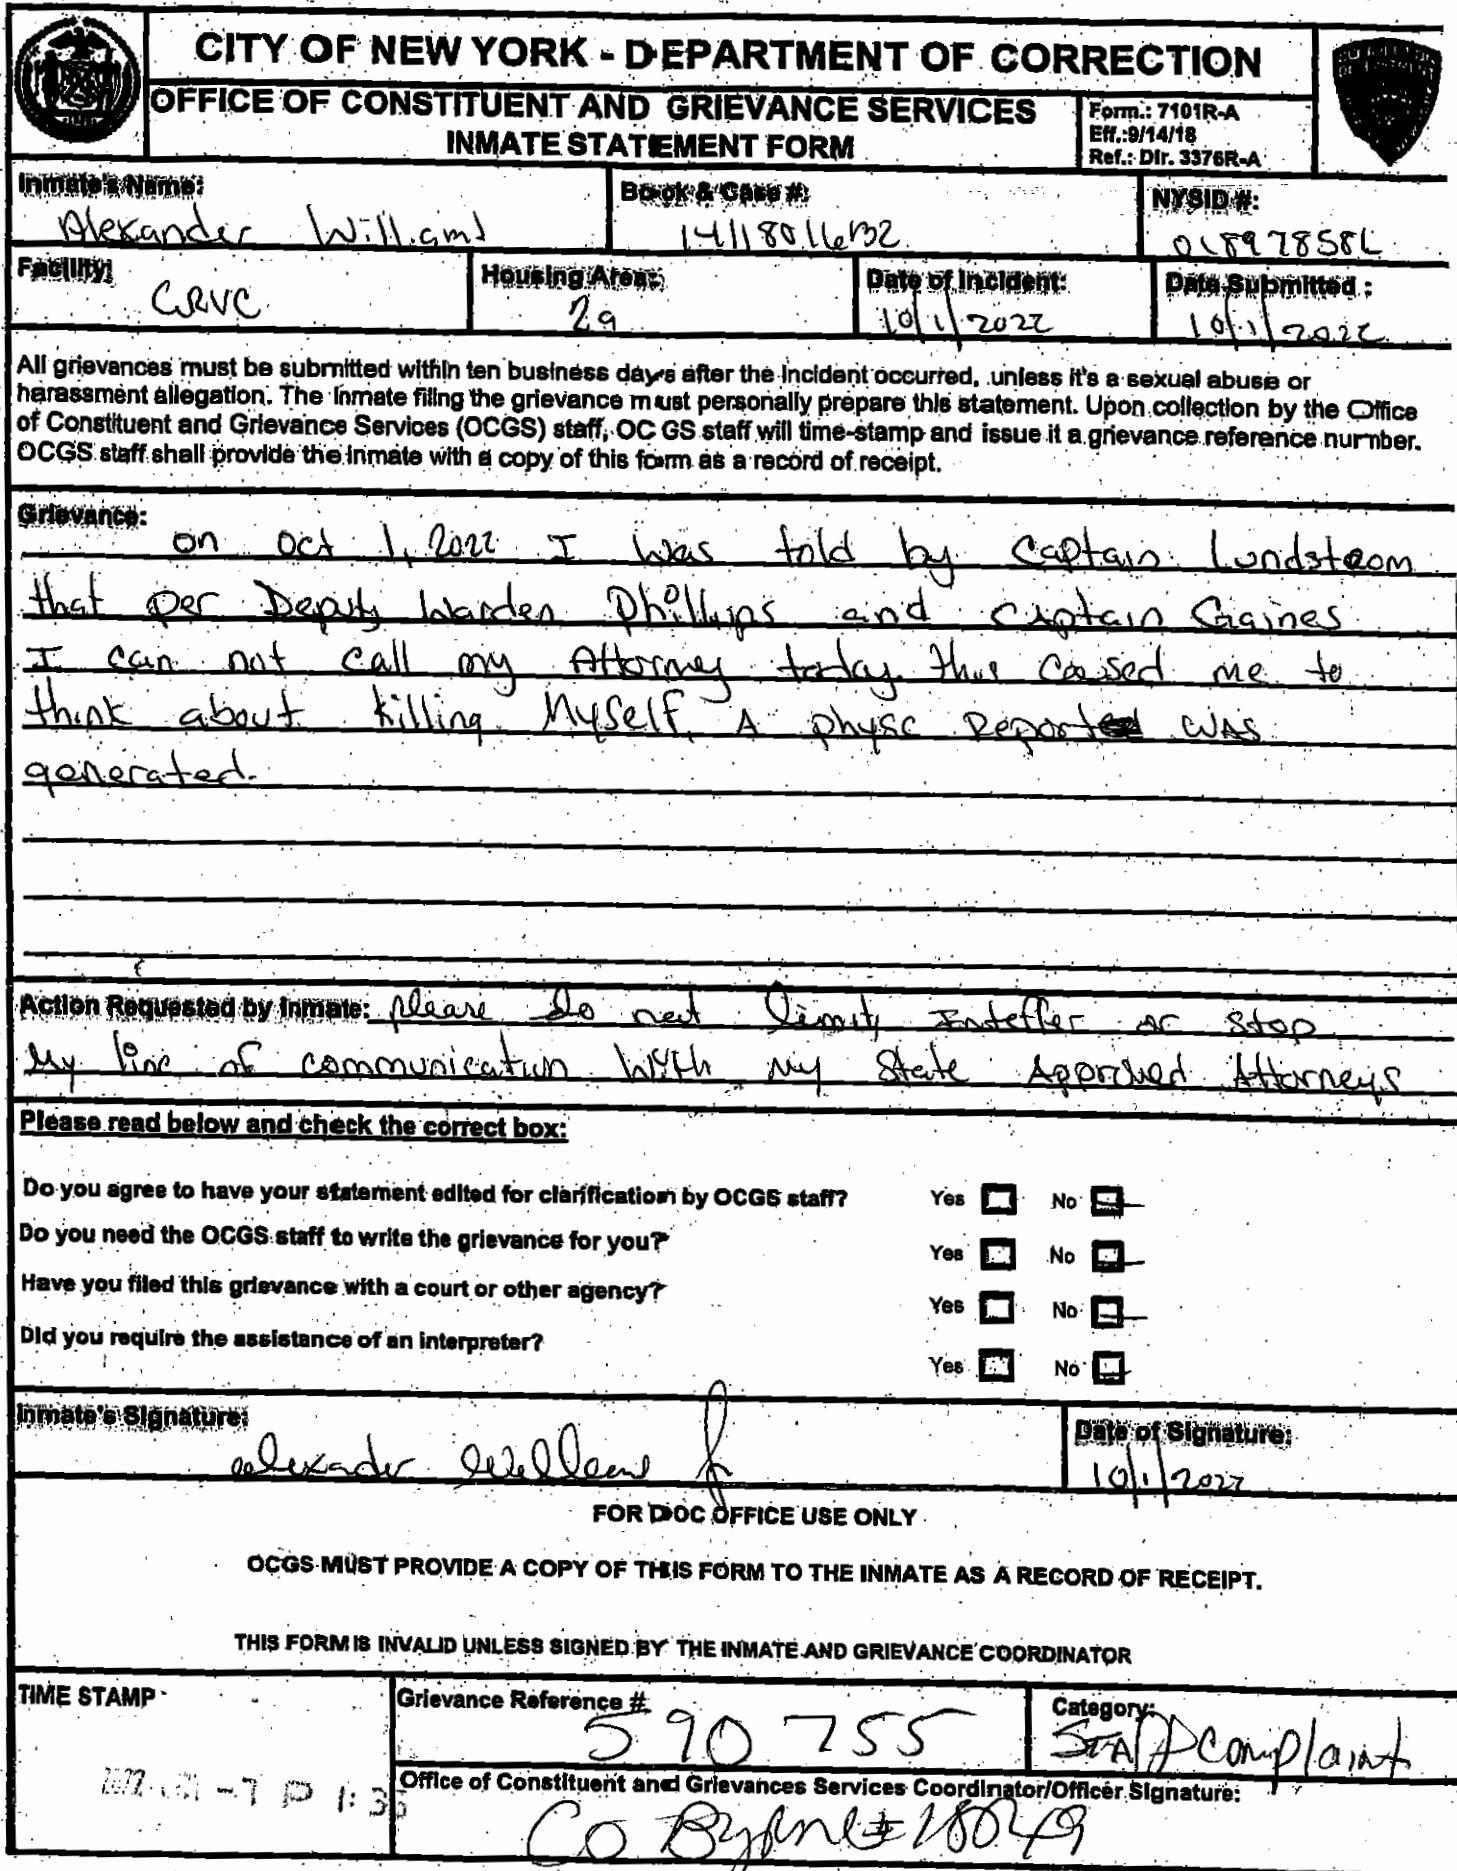 CITY OF NEW YORK - DEPARTMENT OF CORRECTION
OFFICE OF CONSTITUENT AND GRIEVANCE SERVICES
INMATE STATEMENT FORM
Form.: 7101R-A
Eff.:9/14/18
Ref.: Dir. 3376R-A
Inmate's Name:
Alexander Williams
Book & Case #:
NYSID #:
Facility:
GRVC
Housing Area:
2a
Date of Incident:
10/1/2022
Date Submitted :
10/1/2022
All grievances must be submitted within ten business days after the incident occurred, unless it's a sexual abuse or
harassment allegation. The inmate filing the grievance must personally prepare this statement. Upon collection by the Office
of Constituent and Grievance Services (OCGS) staff, OCGS staff will time-stamp and issue it a grievance reference number.
OCGS staff shall provide the inmate with a copy of this form as a record of receipt.
Grievance:
on Oct 1, 2022 I was told by Captain Lundstrom
that per Deputy Warden Phillips and Captain Gaines
I can not call my Attorney today. this caused me to
think about killing Myself, A physc Report was
generated.
Action Requested by Inmate: please do not limit, Inteffer or stop
My line of communication with my State Approved Attorneys
Please read below and check the correct box:
Do you agree to have your statement edited for clarification by OCGS staff? Yes No
Do you need the OCGS staff to write the grievance for you? Yes No
Have you filed this grievance with a court or other agency? Yes No
Did you require the assistance of an interpreter? Yes No
Inmate's Signature:
Date of Signature:
10/1/2022
FOR DOC OFFICE USE ONLY
OCGS MUST PROVIDE A COPY OF THIS FORM TO THE INMATE AS A RECORD OF RECEIPT.
THIS FORM IS INVALID UNLESS SIGNED BY THE INMATE AND GRIEVANCE COORDINATOR
TIME STAMP
Grievance Reference #
590755
Category:
Staff Complaint
Office of Constituent and Grievances Services Coordinator/Officer Signature:
CO Byrne #18049